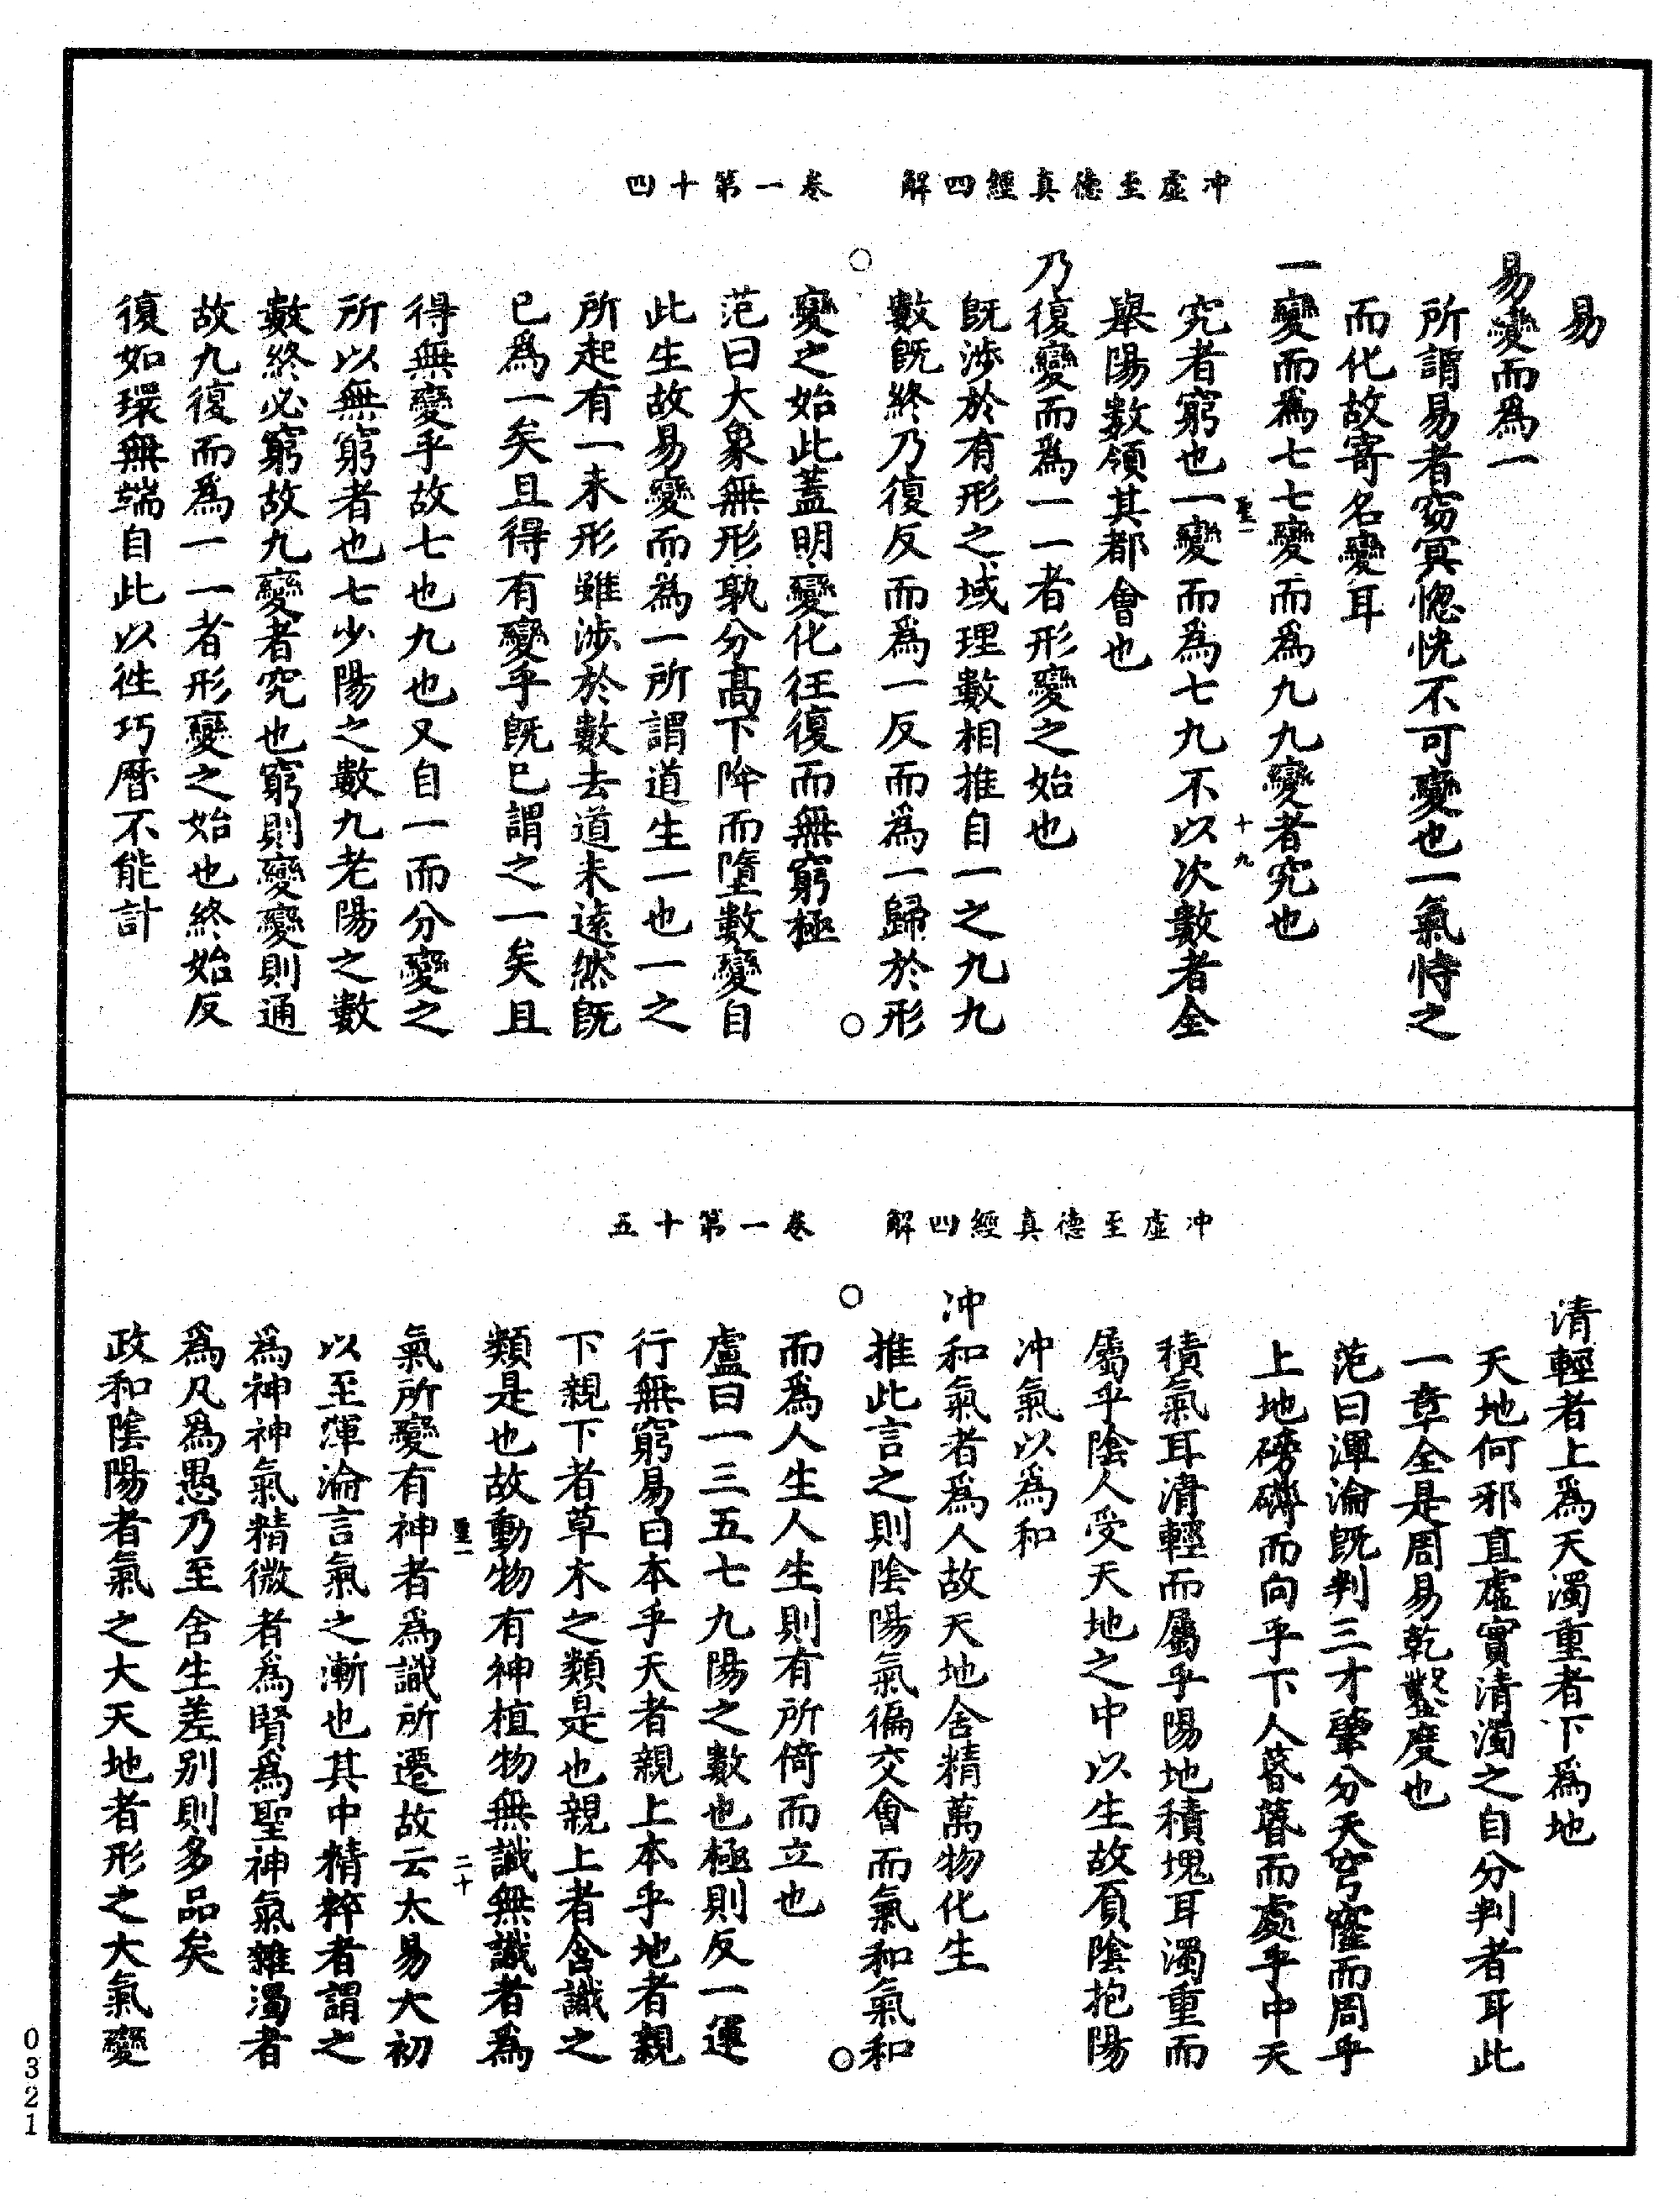 冲虛至德真經四解　卷一第十四
易
易變而爲一
所謂易者窈冥惚恍不可變也一氣恃之
而化故寄名變耳
一變而爲七七變而爲九九變者究也
聖一　十九
究者窮也一變而爲七九不以次數者全
舉陽數領其都會也
乃復變而爲一一者形變之始也
旣涉於有形之域理數相推自一之九九
數旣終乃復反而爲一反而爲一歸於形
變之始此蓋明變化往復而無窮極
范曰大象無形孰分高下降而墮數變自
此生故易變而爲一所謂道生一也一之
所起有一未形雖涉於數去道未遠然旣
已爲一矣且得有變乎旣已謂之一矣且
得無變乎故七也九也又自一而分變之
所以無窮者也七少陽之數九老陽之數
數終必窮故九變者究也窮則變變則通
故九復而爲一一者形變之始也終始反
復如環無端自此以徃巧曆不能計
冲虛至德真經四解　卷一第十五
清輕者上爲天濁重者下爲地
天地何邪直虛實清濁之自分判者耳此
一章全是周易乾鑿度也
范曰渾淪旣判三才肇分天穹窿而周乎
上地磅礴而向乎下人蕞蕞而處乎中天
積氣耳清輕而屬乎陽地積塊耳濁重而
屬乎陰人受天地之中以生故負陰抱陽
冲氣以爲和
冲和氣者爲人故天地含精萬物化生
推此言之則陰陽氣徧交會而氣和氣和
而爲人生人生則有所倚而立也
盧曰一三五七九陽之數也極則反一運
行無窮易曰本乎天者親上本乎地者親
下親下者草木之類是也親上者含識之
類是也故動物有神植物無識無識者爲
聖一　二十
氣所變有神者爲識所遷故云太易太初
以至渾淪言氣之漸也其中精粹者謂之
爲神神氣精微者爲賢爲聖神氣雜濁者
爲凡爲愚乃至含生差别則多品矣
政和陰陽者氣之大天地者形之大氣變
0321